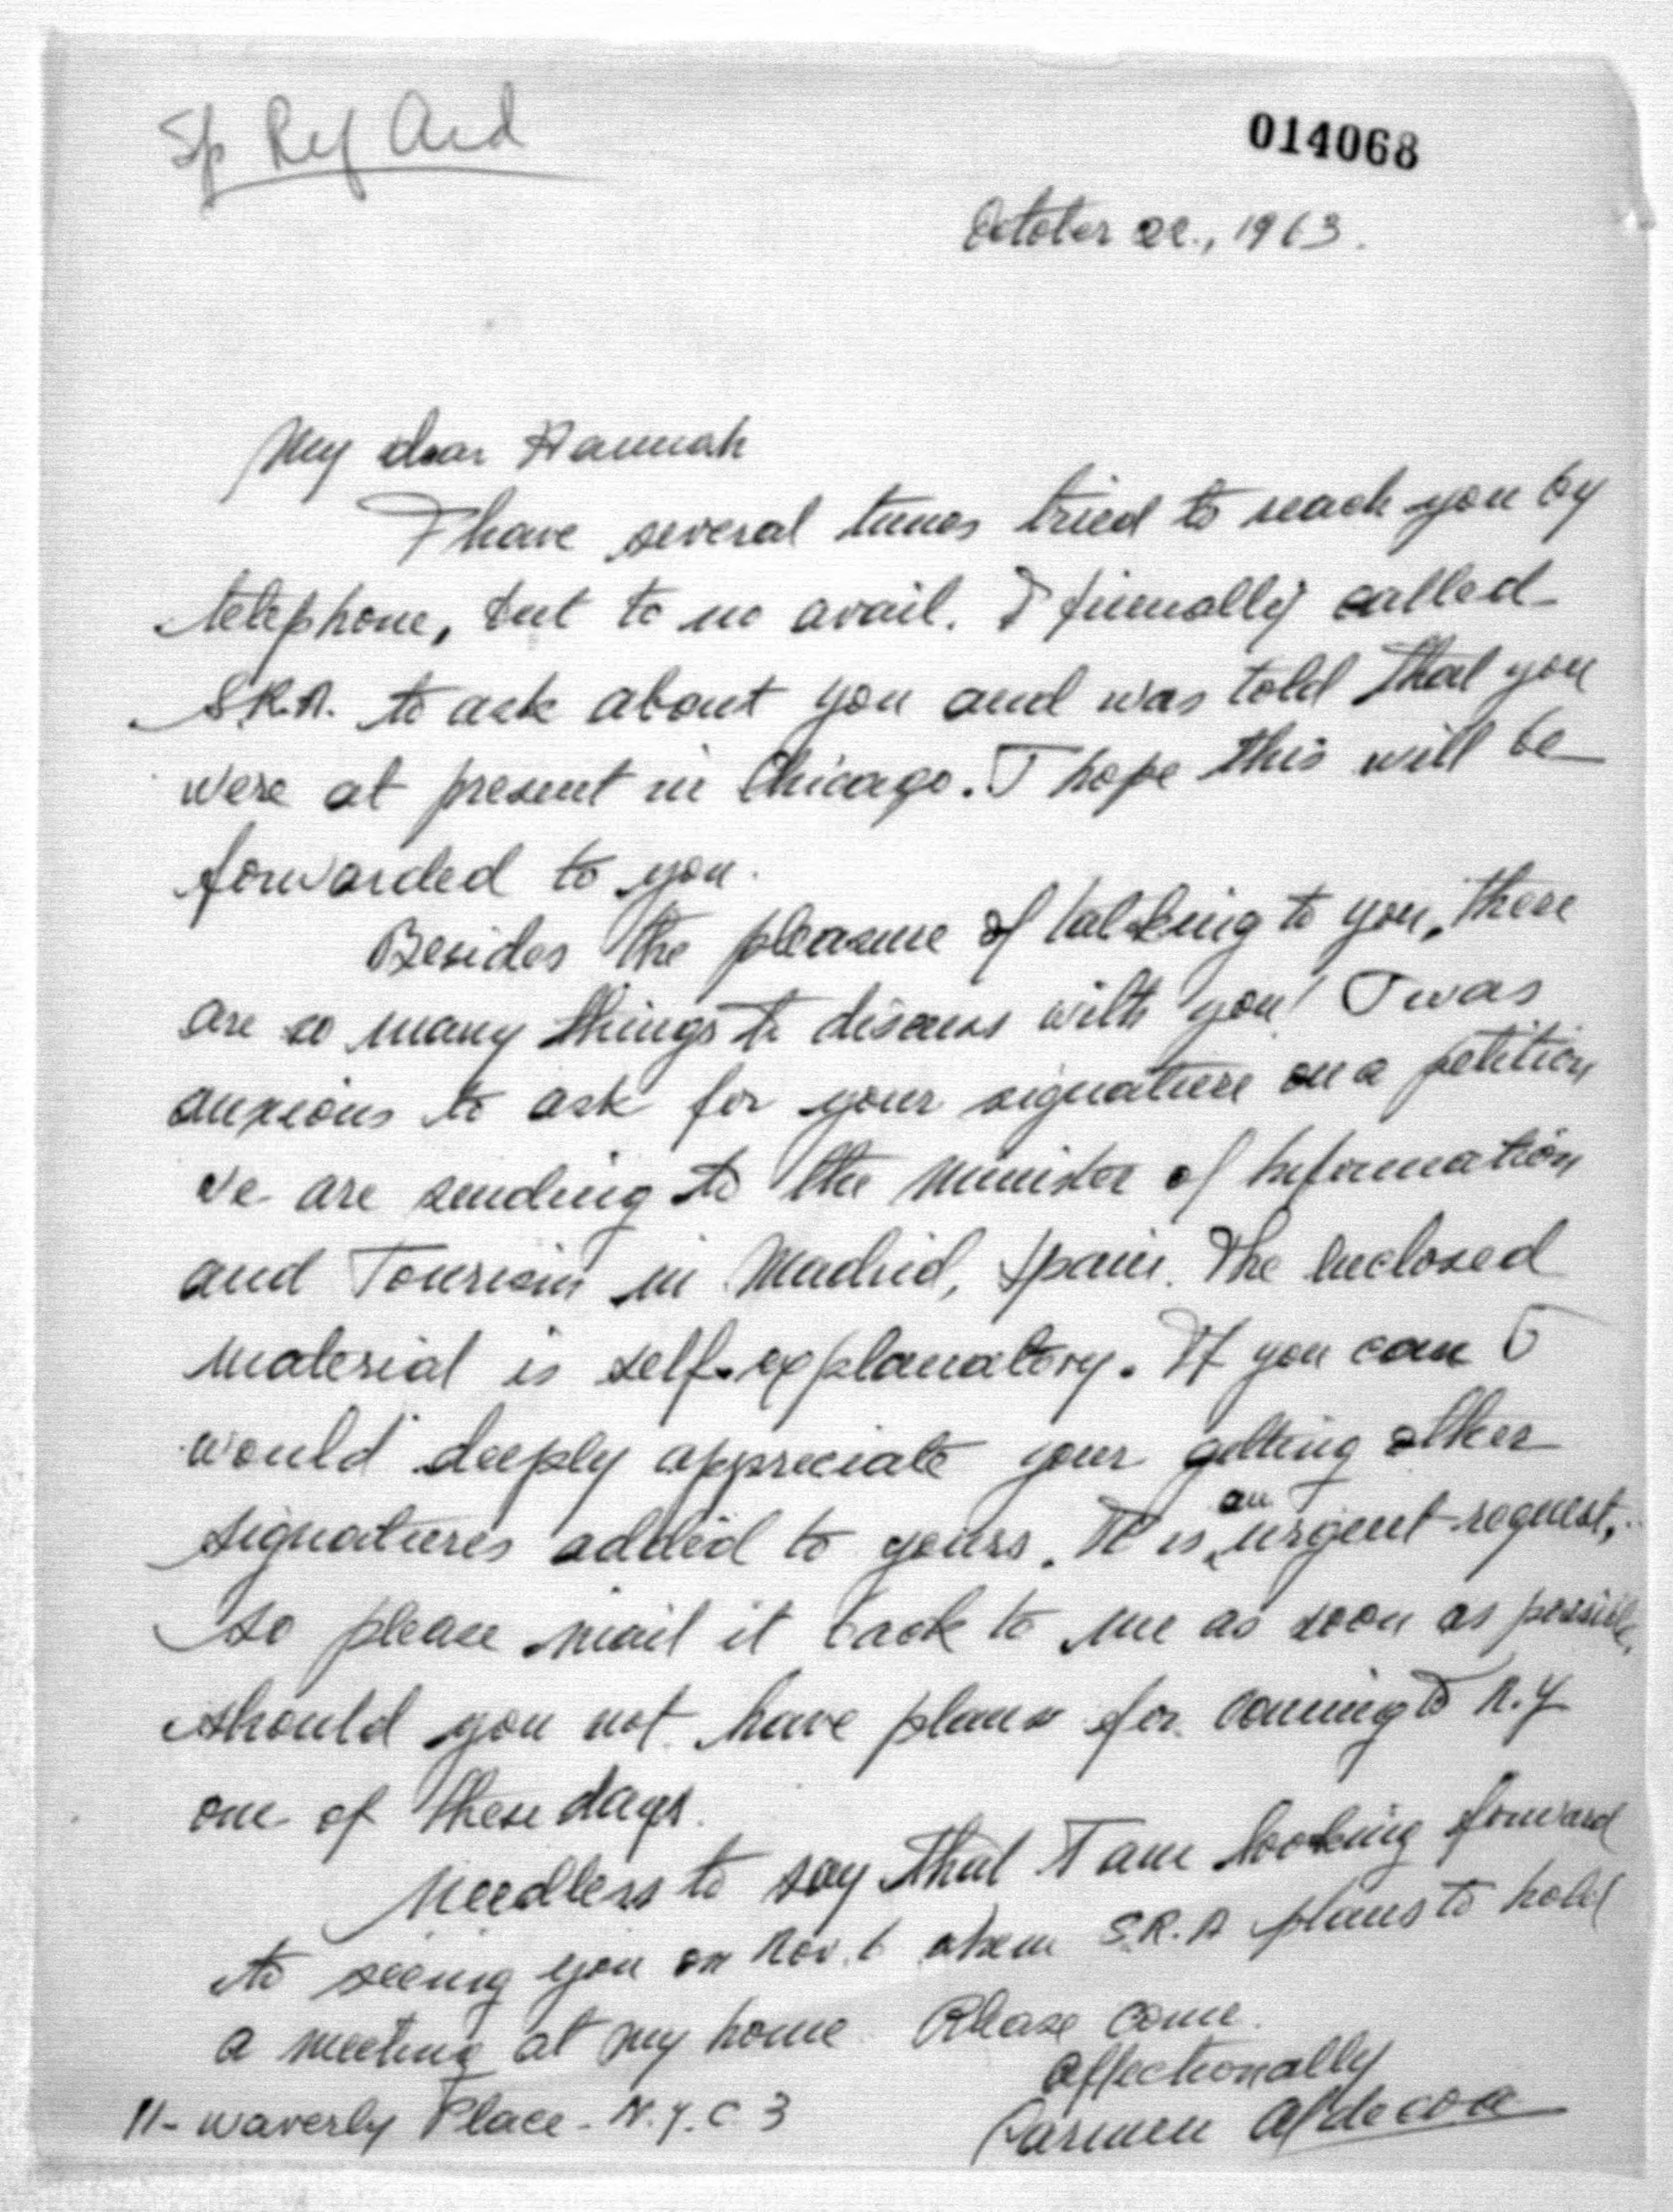 Sp Ref Aid
014068
October 22., 1963.
My dear Hannah
I have several times tried to reach you by
telephone, but to no avail. I finnally called
S.R.A. to ask about you and was told that you
were at present in Chicago. I hope this will be
forwarded to you.
Besides the pleasure of talking to you, there
are so many things to discuss with you! I was
anxious to ask for your signature on a petition
we are sending to the minister of Information
and Tourism in Madrid, Spain. The enclosed
material is self-explanatory. If you can I
would deeply appreciate your getting other
signatures added to yours. It is an urgent request,
so please mail it back to me as soon as possible,
should you not have plans for coming to N.Y
one of these days.
Needless to say that I am looking forward
to seeing you on Nov. 6 when S.R.A plans to hold
a meeting at my home. Please come.
Affectionally
Carmen Aldecoa
11- Waverly Place - N.Y.C 3